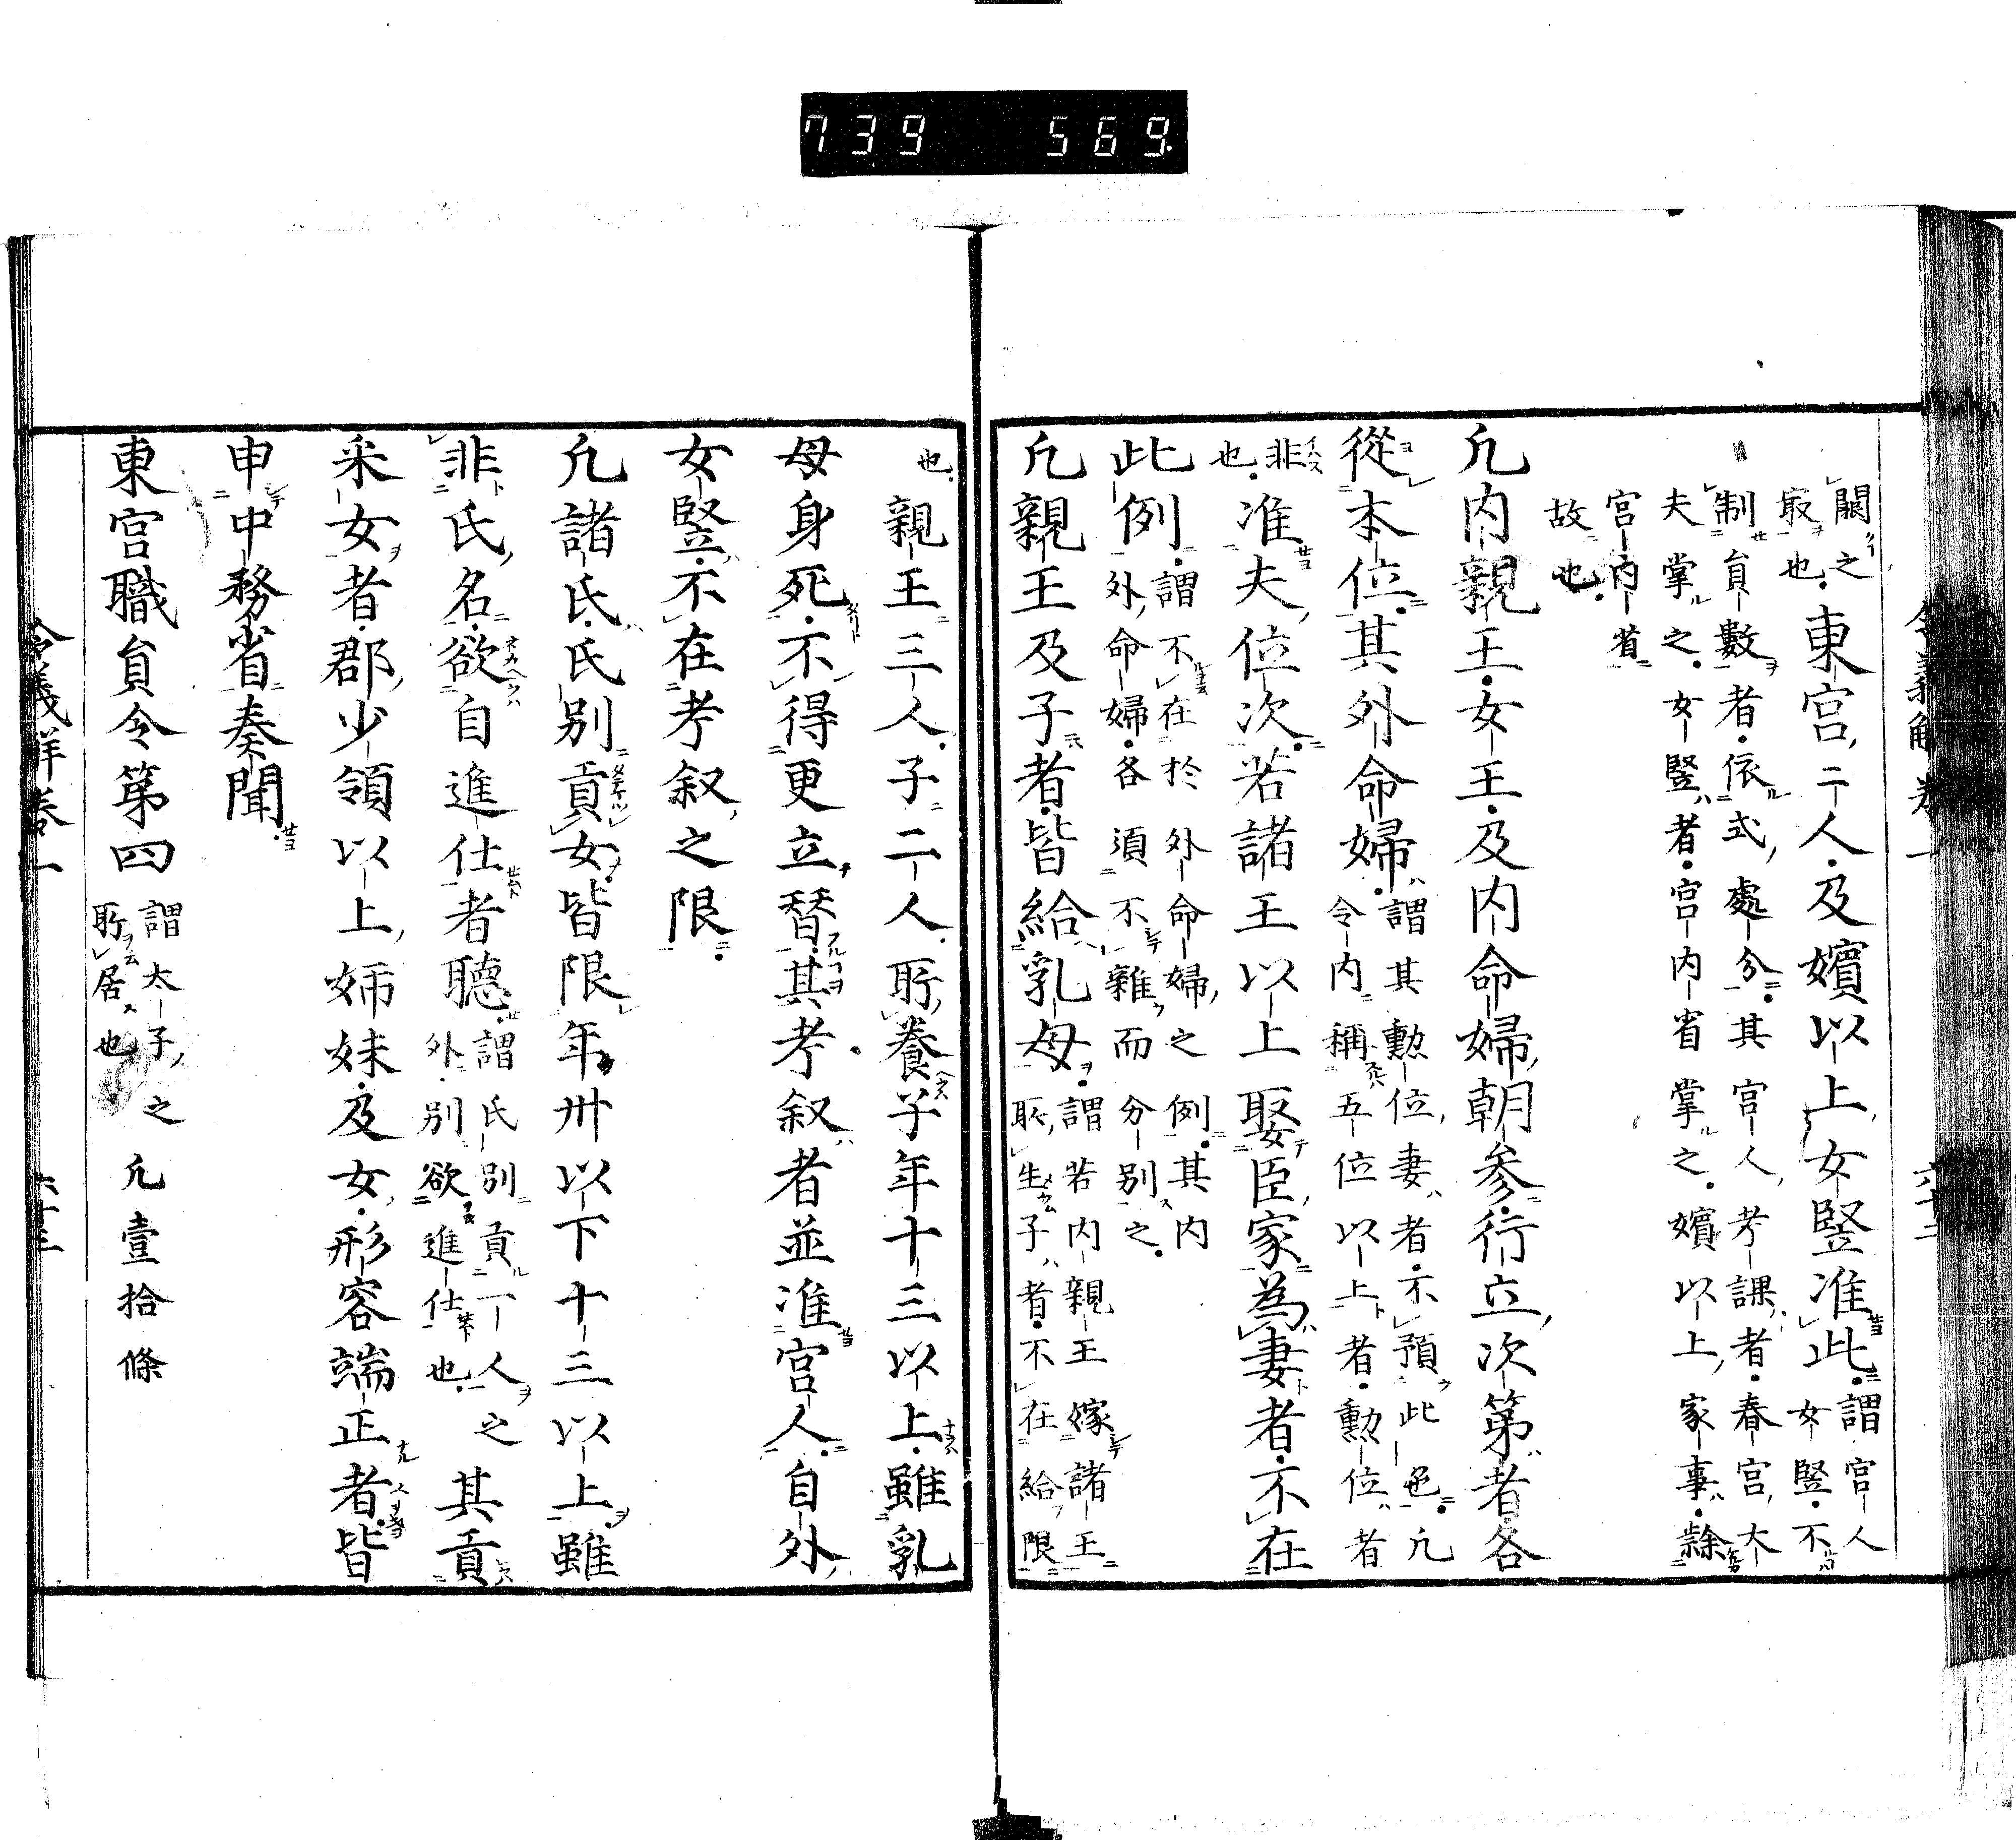 739 569
闕之
最也 東宮二人及嬪以上女竪准此 謂宮人
女竪不
制員數者依式處分其宮人考課者春宮大
夫掌之女竪者宮内省掌之嬪以上家事隸
宮内省
故也
凡内親王女王及内命婦朝參行立次第者各
從本位其外命婦 謂其勳位妻者不預此色凡
令内稱五位以上者勳位者
非
也 准夫位次若諸王以上娶臣家為妻者不在
此例 謂不在於外命婦之例其内
外命婦各須不雜而分別之
凡親王及子者皆給乳母 謂若内親王嫁諸王
所生子者不在給限
也 親王三人子二人所養子年十三以上雖乳
母身死不得更立替其考叙者並准宮人自外
女竪不在考叙之限
凡諸氏氏別貢女皆限年卅以下十三以上雖
非氏名欲自進仕者聽 謂氏別貢一人之
外別欲進仕也 其貢
采女者郡少領以上姉妹及女形容端正者皆
申中務省奏聞
東宮職員令第四 謂太子之
所居也 凡壹拾條
令義解卷一 六十二
令義解卷一 六十三